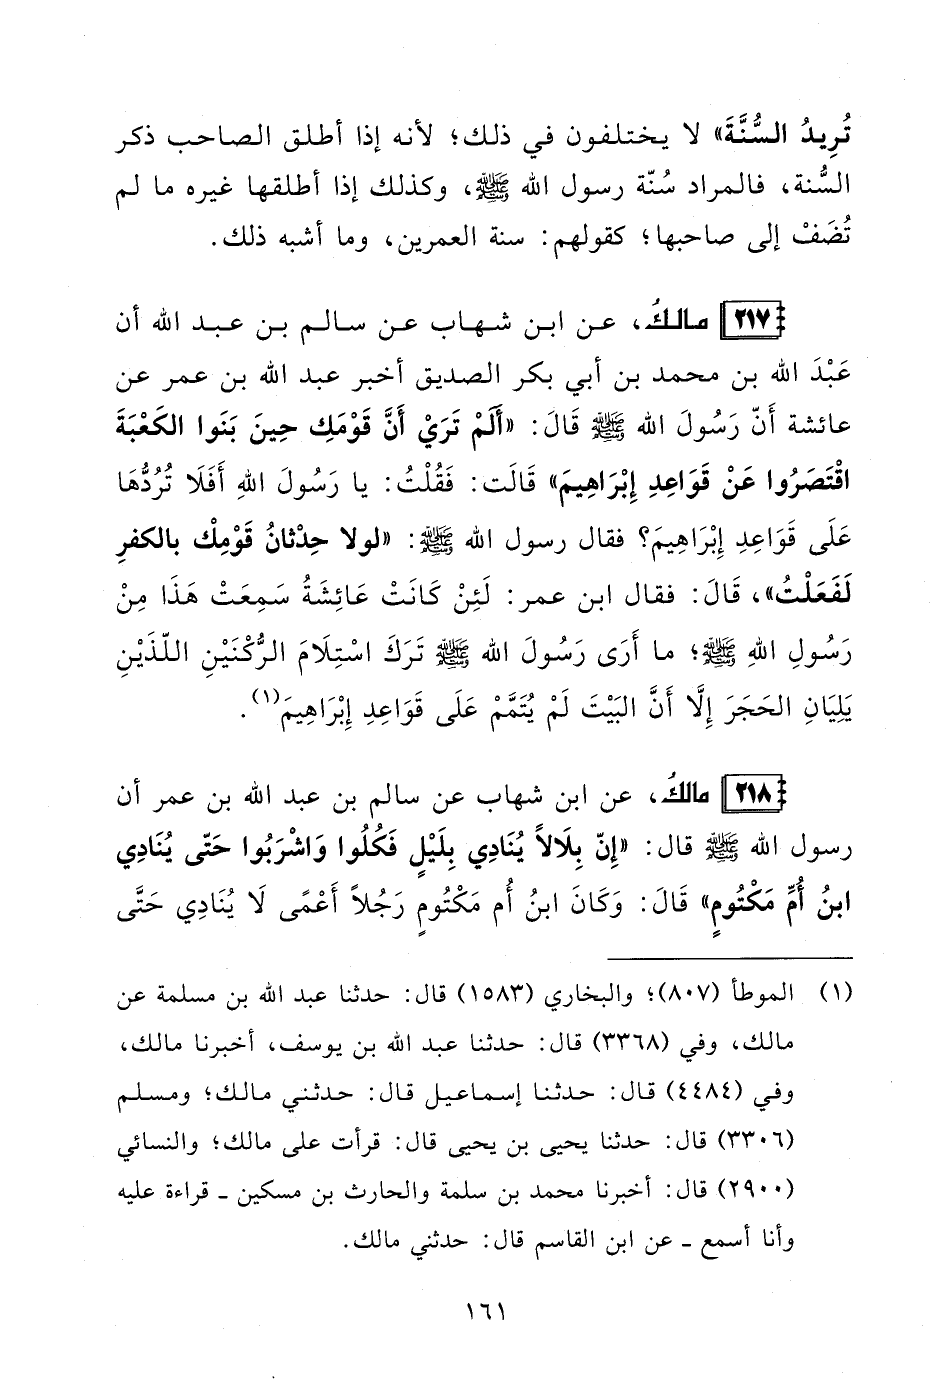 تُرِيدُ السُّنَّةَ» لا يختلفون في ذلك؛ لأنه إذا أطلق الصاحب ذكر
السُّنة، فالمراد سُنّة رسول الله ﷺ، وكذلك إذا أطلقها غيره ما لم
تُضَفْ إلى صاحبها؛ كقولهم: سنة العمرين، وما أشبه ذلك.
٢١٧ مالكُ، عن ابن شهاب عن سالم بن عبد الله أن
عَبْدَ الله بن محمد بن أبي بكر الصديق أخبر عبد الله بن عمر عن
عائشة أَنّ رَسُولَ الله ﷺ قَالَ: «أَلَمْ تَرَيْ أَنَّ قَوْمَكِ حِينَ بَنَوا الكَعْبَةَ
اقْتَصَرُوا عَنْ قَوَاعِدِ إِبْرَاهِيمَ» قَالَت: فَقُلْتُ: يا رَسُولَ اللهِ أَفَلَا تُرُدُّهَا
عَلَى قَوَاعِدِ إِبْرَاهِيمَ؟ فقال رسول الله ﷺ: «لولا حِدْثانُ قَوْمِك بالكفرِ
لَفَعَلْتُ»، قَالَ: فقال ابن عمر: لَئِنْ كَانَتْ عَائِشَةُ سَمِعَتْ هَذَا مِنْ
رَسُولِ اللهِ ﷺ؛ ما أَرَى رَسُولَ الله ﷺ تَرَكَ اسْتِلَامَ الرُّكْنَيْنِ اللّذَيْنِ
يَلِيَانِ الحَجَرَ إِلَّا أَنَّ البَيْتَ لَمْ يُتَمَّمْ عَلَى قَوَاعِدِ إِبْرَاهِيمَ(١).
٢١٨ مالكُ، عن ابن شهاب عن سالم بن عبد الله بن عمر أن
رسول الله ﷺ قال: «إِنّ بِلَالاً يُنَادِي بِلَيْلٍ فَكُلُوا وَاشْرَبُوا حَتّى يُنَادِي
ابنُ أُمِّ مَكْتُومٍ» قَالَ: وَكَانَ ابنُ أُم مَكْتُومٍ رَجُلاً أَعْمًى لَا يُنَادِي حَتَّى
(١) الموطأ (٨٠٧)؛ والبخاري (١٥٨٣) قال: حدثنا عبد الله بن مسلمة عن
مالك، وفي (٣٣٦٨) قال: حدثنا عبد الله بن يوسف، أخبرنا مالك،
وفي (٤٤٨٤) قال: حدثنا إسماعيل قال: حدثني مالك؛ ومسلم
(٣٣٠٦) قال: حدثنا يحيى بن يحيى قال: قرأت على مالك؛ والنسائي
(٢٩٠٠) قال: أخبرنا محمد بن سلمة والحارث بن مسكين ـ قراءة عليه
وأنا أسمع ـ عن ابن القاسم قال: حدثني مالك.
١٦١